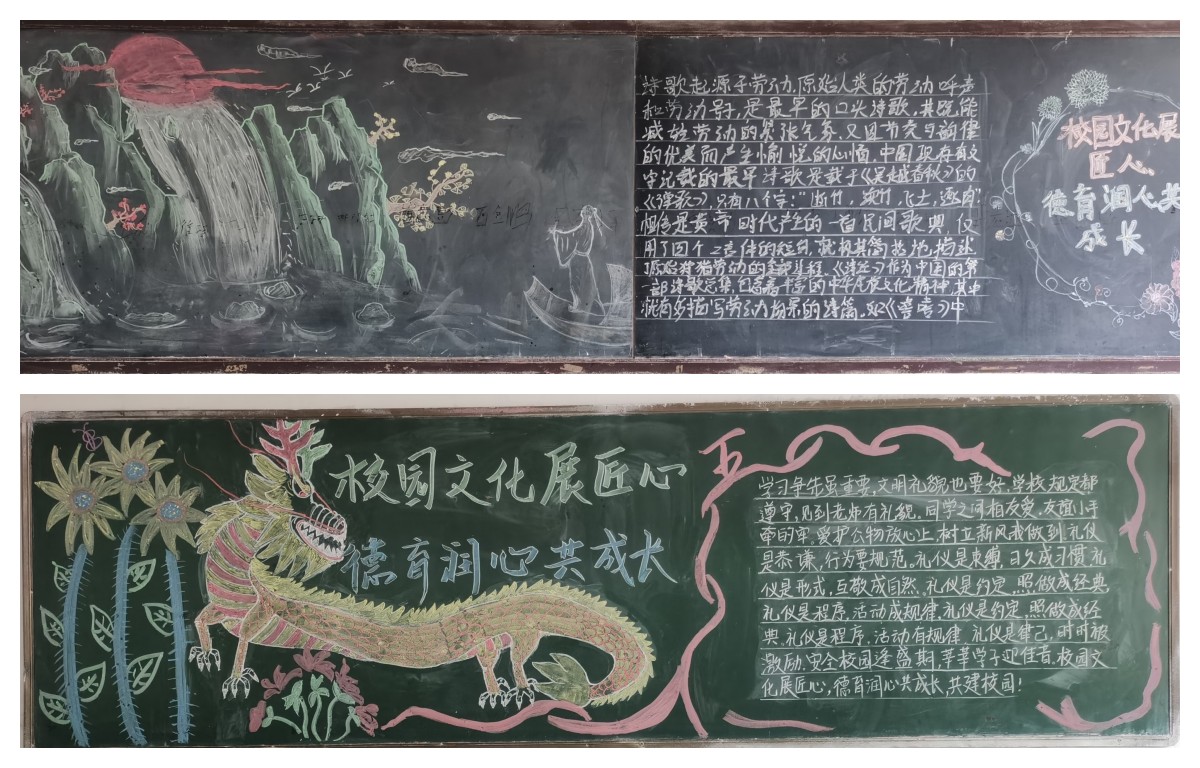 诗歌起源于劳动,原始人类的劳动呼声
和劳动号子,是最早的口头诗歌,其既能
减轻劳动的紧张气氛,又因节奏与韵律
的优美而产生愉悦的心情,中国现存有文
字记载的最早诗歌是载于《吴越春秋》的
《弹歌》,只有八个字:"断竹,续竹,飞土,逐肉"
是黄帝时代产生的一首民间歌典,仅
用了四个二言体的短句,就
劳动的
部诗歌总集,
就有多描写劳动场景的诗篇,如《 》中
校园文化展
匠人
德育润心共
成长
校园文化展匠心
德育润心共成长
学习争先虽重要,文明礼貌也要好,学校规定都
遵守,见到老师有礼貌.同学之间相友爱,友谊小手
牵的牢,爱护公物放心上,树立新风我做到,礼仪
是恭谦,行为要规范。礼仪是束缚,日久成习惯,礼
仪是形式,互敬成自然,礼仪是约定,照做成经典,
礼仪是程序,活动成规律,礼仪是约定,照做成经
典,礼仪是程序,活动有规律,礼仪是律己,时时被
激励,安全校园逢盛期,莘莘学子迎佳音,校园文
化展匠心,德育润心共成长,共建校园!